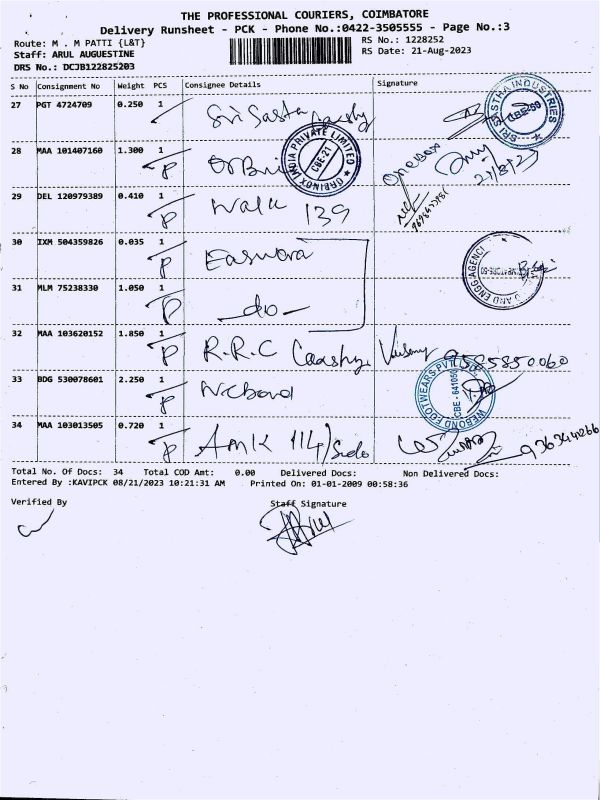 THE PROFESSIONAL COURIERS, COIMBATORE
Delivery Runsheet - PCK - Phone No.:0422-3505555 - Page No.:3
Route: M . M PATTI {L&T}
RS No.: 1228252
Staff: ARUL AUGUESTINE
RS Date: 21-Aug-2023
DRS No.: DCJB122825203
S No Consignment No Weight PCS Consignee Details Signature
27 PGT 4724709 0.250 1 Sri Sasta
SRI SASTHA INDUSTRIES
CBE-50
28 MAA 101407160 1.300 1 P
ORBINOX INDIA PRIVATE LIMITED
CBE-21
21/8/23
29 DEL 120979389 0.410 1 P Walk 139
30 IXM 504359826 0.035 1 P Easwora
AND ENGG AGENCI
31 MLM 75238330 1.050 1 P - do -
32 MAA 103620152 1.850 1 P R.R.C 9585850060
33 BDG 530078601 2.250 1 P Webond
WEBOND FOOTWEARS PVT LTD
CBE - 641050
34 MAA 103013505 0.720 1 P AMK 114/Sido
Total No. Of Docs: 34 Total COD Amt: 0.00 Delivered Docs: Non Delivered Docs:
Entered By :KAVIPCK 08/21/2023 10:21:31 AM Printed On: 01-01-2009 00:58:36
Verified By Staff Signature